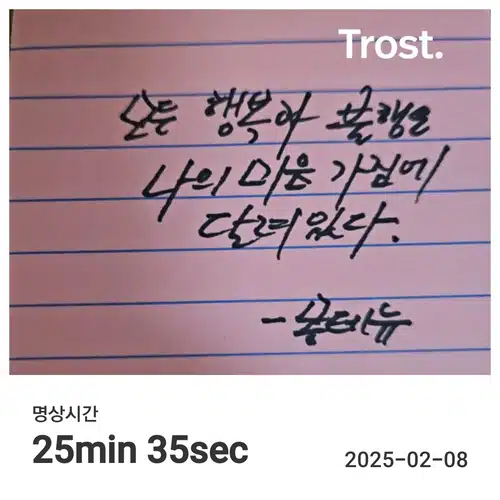 Trost.
모든 행복과 불행은
나의 마음 가짐에
달려있다.
- 몽테뉴
명상시간
25min 35sec
2025-02-08